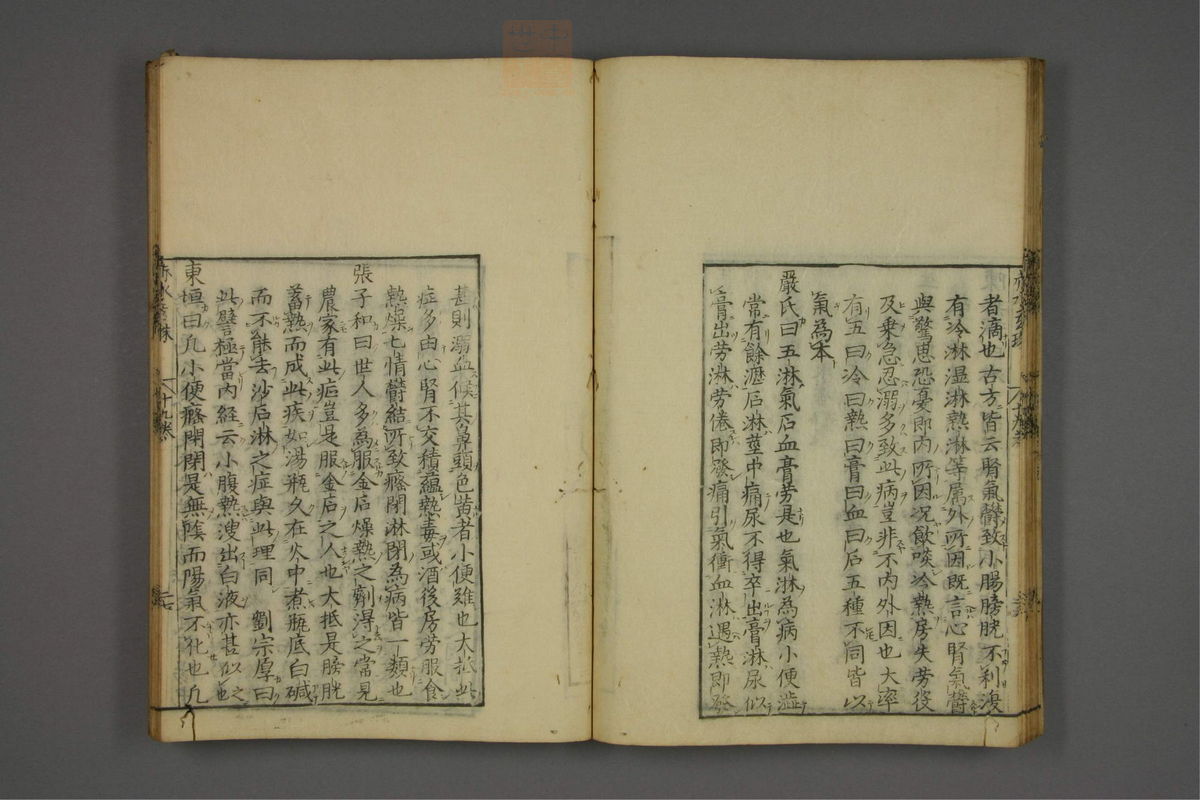 者滴也古方皆云腎氣欝致小腸膀胱不利復
有冷淋湿淋熱淋等属外所因既言心腎氣欝
與驚思恐憂即内所因况飲啖冷熱房失労役
及乗急忍溺多致此病豈非不内外因也大率
有五曰冷曰熱曰膏曰血曰石五種不同皆以
氣為本
嚴氏曰五淋氣石血膏労是也氣淋為病小便澁
常有餘瀝石淋莖中痛尿不得卒出膏淋尿似
膏出労淋劳倦即發痛引氣衝血淋遇熱即發
甚則溺血候其鼻頭色黄者小便難也大抵此
症多由心腎不交積蘊熱毒或酒後房劳服食
熱燥七情欝結所致癃閉淋閉為病皆一類也
張子和曰世人多為服金石燥熱之劑得之常見
農家有此症豈是服金石之人也大抵是膀胱
蓄熱而成此疾如湯瓶久在火中煮瓶底白碱
而不能去沙石淋之症與此理同 劉宗厚曰
此譬極當内經云小腹熱溲出白液亦甚似之
東垣曰凡小便癃閉閉是無陰而陽氣不化也凡
十九巻